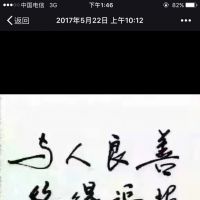 中国电信 3G 下午1:46 82%
返回 2017年5月22日 上午10:12
与人良善